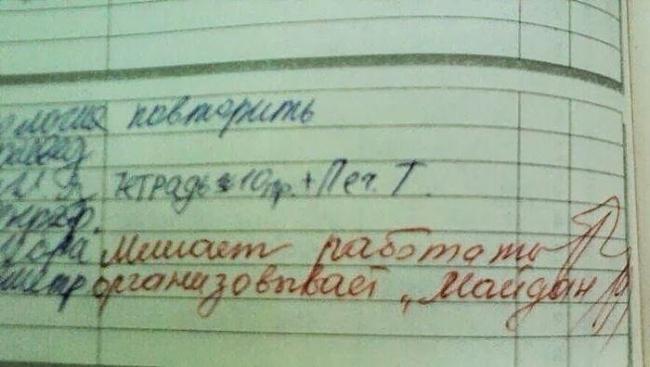 ология повторить
тетрадь 10 пр. + Печ. Т.
мешает работать
организовывает „Майдан"